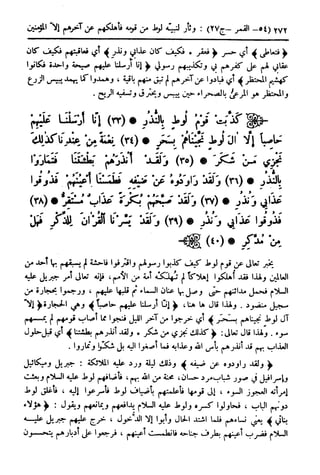 ٢٧٢ (٥٤- القمر - ج٢٧) : وثأر لنبيّه لوط من قومه فأهلكهم عن آخرهم إلا المؤمنين
﴿ فتعاطى ﴾ أي حسر ﴿ فعقر ۞ فكيف كان عذابي ونذر ﴾ أي فعاقبتهم فكيف كان
عقابي لهم على كفرهم بي وتكذيبهم رسولي ﴿ إنا أرسلنا عليهم صيحة واحدة فكانوا
كهشيم المحتظر ﴾ أي فبادوا عن آخرهم لم تبق منهم باقية ، وهمدوا كما يهمد يبيس الزرع
والمحتظر هو المرعى بالصحراء حين ييبس ويحترق وتسفيه الريح .
﴿ كَذَّبَتْ قَوْمُ لُوطٍ بِالنُّذُرِ ۞ (٣٣) إِنَّا أَرْسَلْنَا عَلَيْهِمْ
حَاصِبًا إِلَّا آلَ لُوطٍ نَجَّيْنَاهُمْ بِسَحَرٍ ۞ (٣٤) نِعْمَةً مِنْ عِنْدِنَا كَذَلِكَ
نَجْزِي مَنْ شَكَرَ ۞ (٣٥) وَلَقَدْ أَنْذَرَهُمْ بَطْشَتَنَا فَتَمَارَوْا
بِالنُّذُرِ ۞ (٣٦) وَلَقَدْ رَاوَدُوهُ عَنْ ضَيْفِهِ فَطَمَسْنَا أَعْيُنَهُمْ فَذُوقُوا
عَذَابِي وَنُذُرِ ۞ (٣٧) وَلَقَدْ صَبَّحَهُمْ بُكْرَةً عَذَابٌ مُسْتَقِرٌّ ۞ (٣٨)
فَذُوقُوا عَذَابِي وَنُذُرِ ۞ (٣٩) وَلَقَدْ يَسَّرْنَا الْقُرْآنَ لِلذِّكْرِ فَهَلْ
مِنْ مُدَّكِرٍ ۞ (٤٠) ﴾
يخبر تعالى عن قوم لوط كيف كذبوا رسولهم واقترفوا فاحشة لم يسبقهم بها أحد من
العالمين ولهذا فقد أهلكوا إهلاكا لم تُهلكه أمة من الأمم ، فإنه تعالى أمر جبريل عليه
السلام فحمل مدائنهم حتى وصل بها عنان السماء ثم قلبها عليهم ، ورجموا بحجارة من
سجيل منضود . ولهذا قال ها هنا، ﴿ إنا أرسلنا عليهم حاصبا ﴾ وهي الحجارة ﴿ إلا
آل لوط نجيناهم بسحر ﴾ أي خرجوا من آخر الليل فنجوا مما أصاب قومهم لم يمسسهم
سوء . ولهذا قال تعالى: ﴿ كذلك نجزي من شكر ۞ ولقد أنذرهم بطشتنا ﴾ أي قبل حلول
العذاب بهم قد أنذرهم بأس الله وعذابه فما أصغوا إليه بل شكوا وتماروا .
﴿ ولقد راودوه عن ضيفه ﴾ وذلك ليلة ورد عليه الملائكة : جبريل وميكائيل
وإسرافيل في صور شباب مرد حسان، محنة من الله بهم ، فأضافهم لوط عليه السلام وبعثت
إمرأته العجوز السوء ، إلى قومها فأعلمتهم بأضياف لوط فأسرعوا إليه ، فأغلق لوط
دونهم الباب ، فحاولوا كسره ولوط عليه السلام يدافعهم ويمانعهم ويقول : ﴿ هؤلاء
بناتي ﴾ يعني نساءهم فلما اشتد الحال وأبوا إلا الدخول ، خرج عليهم جبريل عليــه
السلام فضرب أعينهم بطرف جناحه فانطمست أعينهم ، فرجعوا على أدبارهم يتحســون